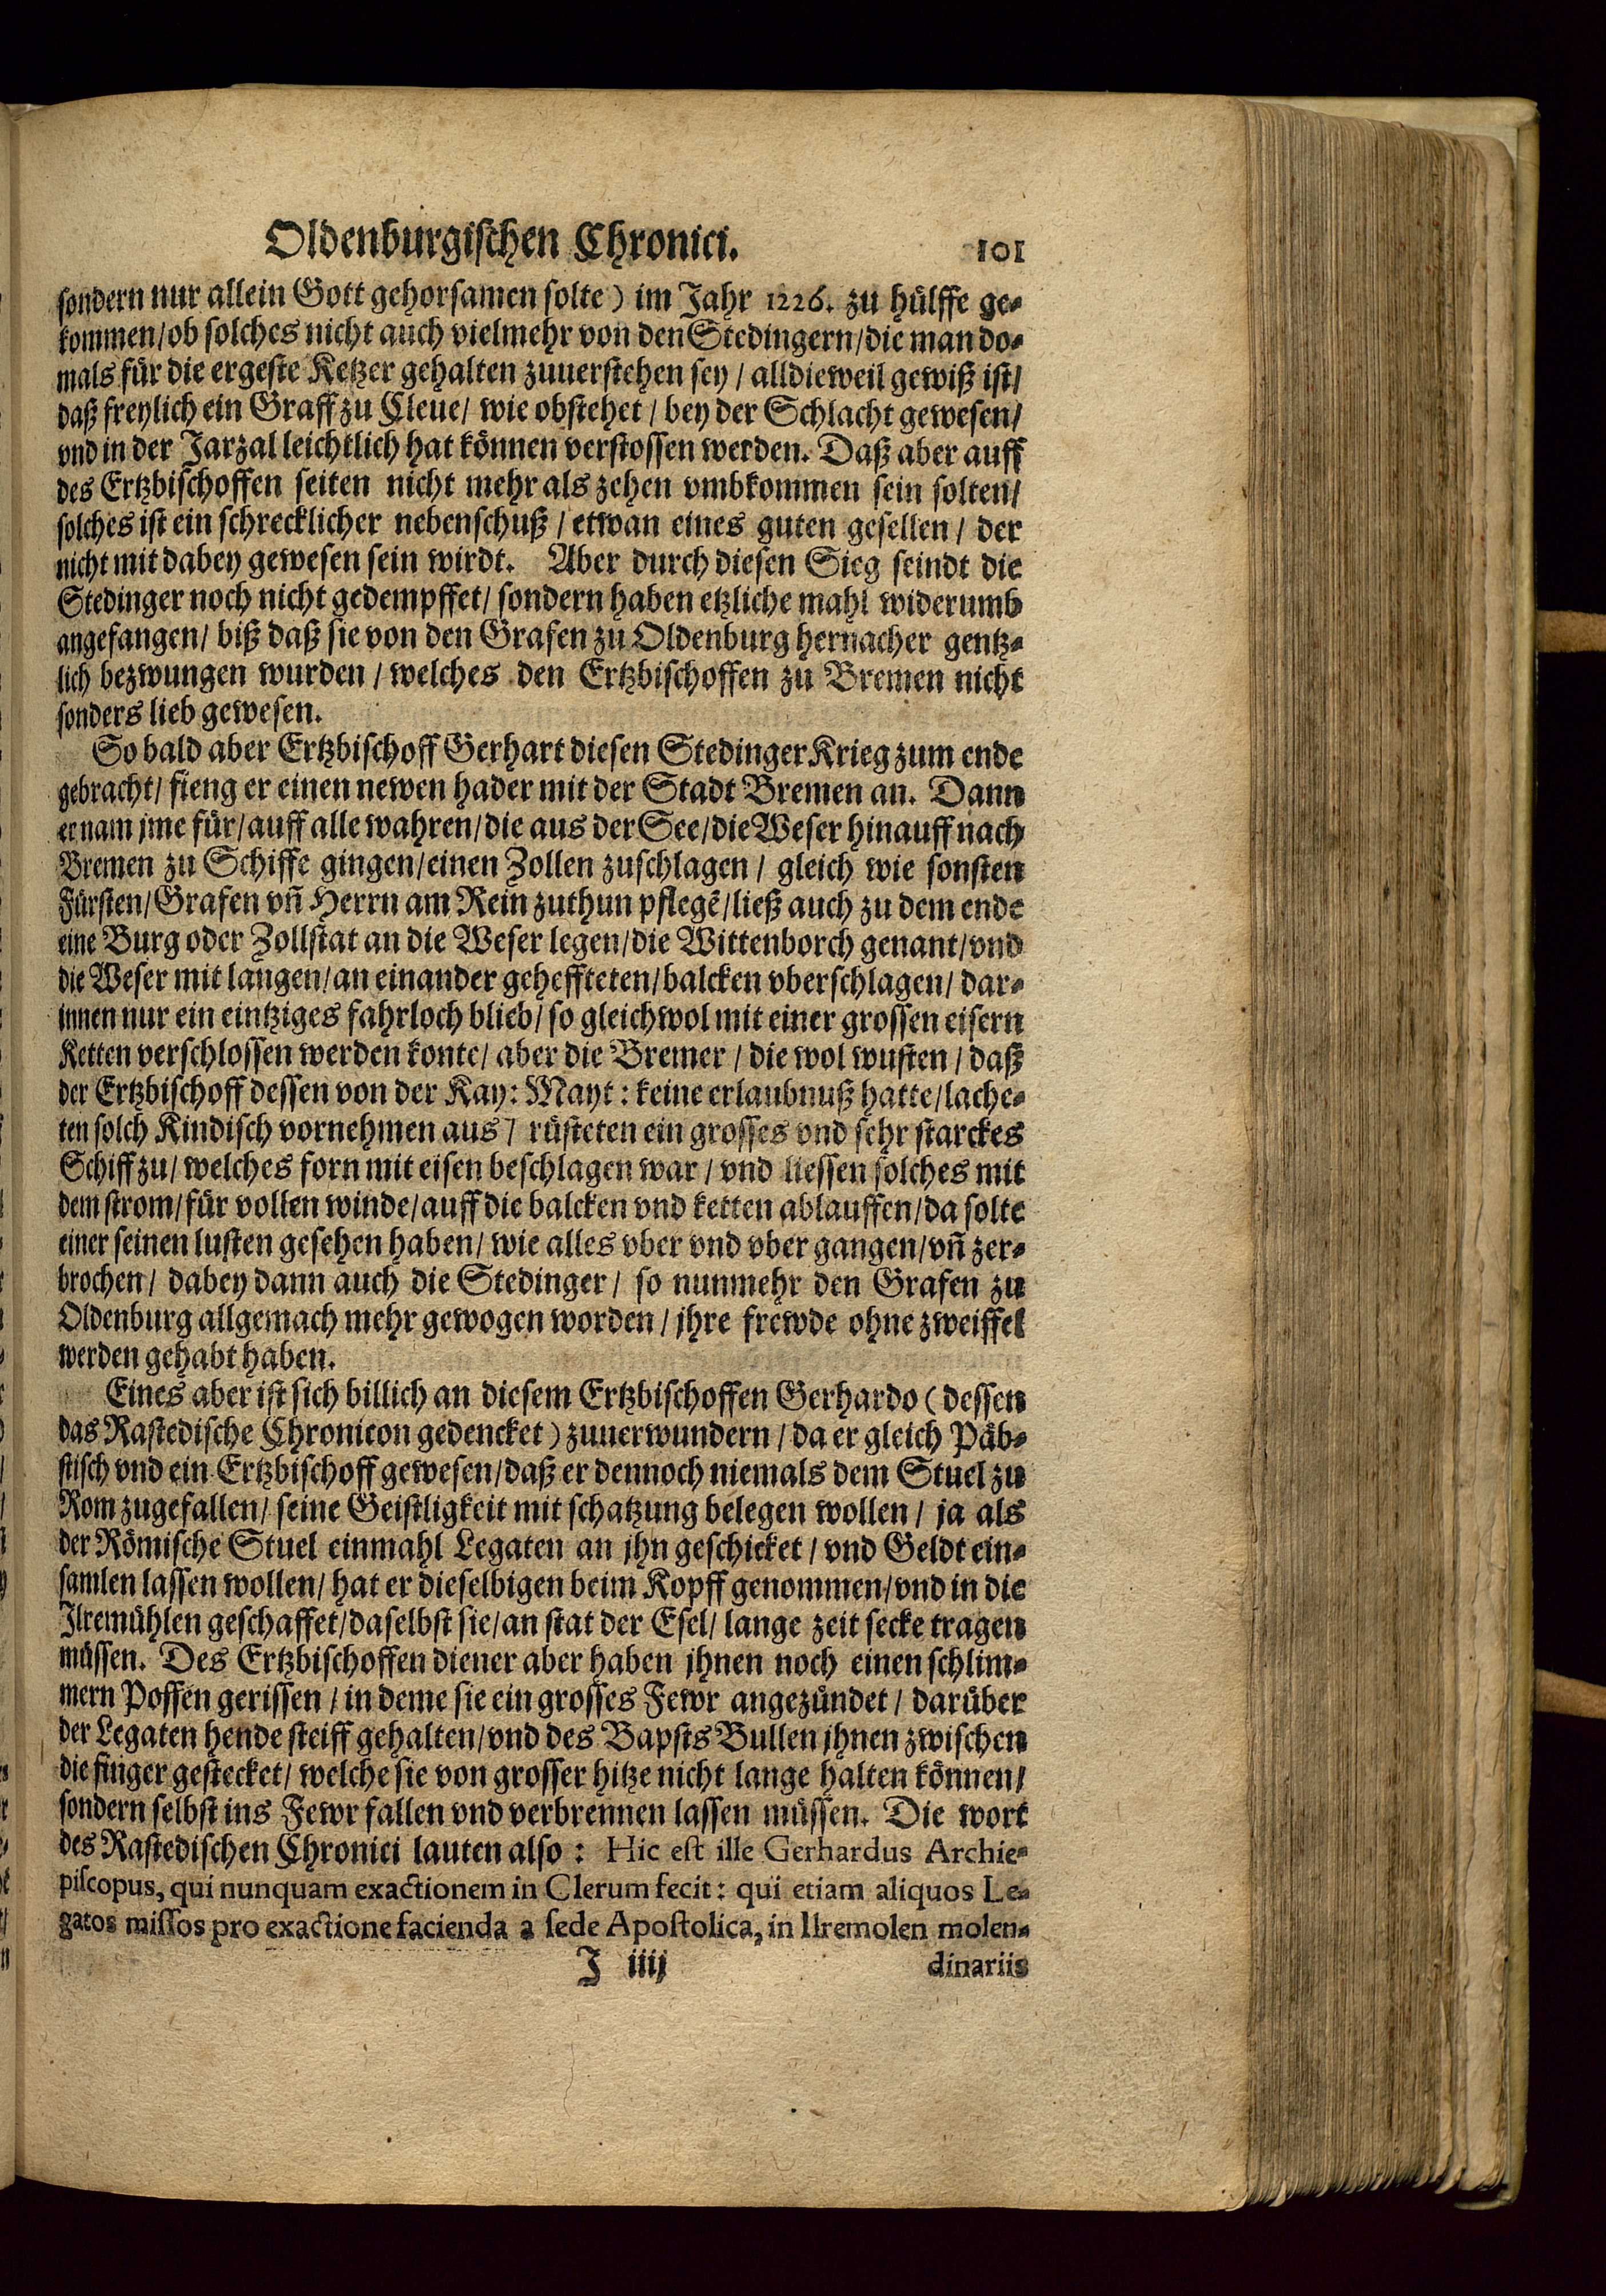 Oldenburgischen Chronici. 101
sondern nur allein Gott gehorsamen solte) im Jahr 1226. zu hülffe ge-
kommen/ob solches nicht auch vielmehr von den Stedingern/die man do-
mals für die ergeste Ketzer gehalten zuuerstehen sey / alldieweil gewiß ist/
daß freylich ein Graff zu Cleue/ wie obstehet / bey der Schlacht gewesen/
vnd in der Jarzal leichtlich hat können verstossen werden. Daß aber auff
des Ertzbischoffen seiten nicht mehr als zehen vmbkommen sein solten/
solches ist ein schrecklicher nebenschuß / etwan eines guten gesellen / der
nicht mit dabey gewesen sein wirdt. Aber durch diesen Sieg seindt die
Stedinger noch nicht gedempffet/ sondern haben etzliche mahl widerumb
angefangen/ biß daß sie von den Grafen zu Oldenburg hernacher gentz-
lich bezwungen wurden / welches den Ertzbischoffen zu Bremen nicht
sonders lieb gewesen.
So bald aber Ertzbischoff Gerhart diesen Stedinger Krieg zum ende
gebracht/ fieng er einen newen hader mit der Stadt Bremen an. Dann
er nam jme für/auff alle wahren/die aus der See/die Weser hinauff nach
Bremen zu Schiffe gingen/einen Zollen zuschlagen / gleich wie sonsten
Fürsten/Grafen vñ Herrn am Rein zuthun pflegẽ/ließ auch zu dem ende
eine Burg oder Zollstat an die Weser legen/die Wittenborch genant/vnd
die Weser mit langen/an einander gehefften/balcken vberschlagen/ dar-
innen nur ein eintziges fahrloch blieb/ so gleichwol mit einer grossen eisern
Ketten verschlossen werden konte/ aber die Bremer / die wol wusten / daß
der Ertzbischoff dessen von der Kay: Mayt: keine erlaubnuß hatte/lache-
ten solch Kindisch vornehmen aus / rüsteten ein grosses vnd sehr starckes
Schiff zu/ welches forn mit eisen beschlagen war / vnd liessen solches mit
dem strom/für vollen winde/auff die balcken vnd ketten ablauffen/da solte
einer seinen lusten gesehen haben/ wie alles vber vnd vber gangen/vñ zer-
brochen/ dabey dann auch die Stedinger/ so nunmehr den Grafen zu
Oldenburg allgemach mehr gewogen worden / jhre frewde ohne zweiffel
werden gehabt haben.
Eines aber ist sich billich an diesem Ertzbischoffen Gerhardo (dessen
das Rastedische Chronicon gedencket) zuuerwundern / da er gleich Päb-
stisch vnd ein Ertzbischoff gewesen/daß er dennoch niemals dem Stuel zu
Rom zugefallen/ seine Geistligkeit mit schatzung belegen wollen / ja als
der Römische Stuel einmahl Legaten an jhn geschicket / vnd Geldt ein-
samlen lassen wollen/ hat er dieselbigen beim Kopff genommen/vnd in die
Ilremühlen geschaffet/daselbst sie/an stat der Esel/ lange zeit secke tragen
müssen. Des Ertzbischoffen diener aber haben jhnen noch einen schlim-
mern Possen gerissen / in deme sie ein grosses Fewr angezündet / darüber
der Legaten hende steiff gehalten/vnd des Bapsts Bullen jhnen zwischen
die finger gestecket/ welche sie von grosser hitze nicht lange halten können/
sondern selbst ins Fewr fallen vnd verbrennen lassen müssen. Die wort
des Rastedischen Chronici lauten also : Hic est ille Gerhardus Archie-
piscopus, qui nunquam exactionem in Clerum fecit: qui etiam aliquos Le-
gatos missos pro exactione facienda a sede Apostolica, in Ilremolen molen-
J iiij dinariis